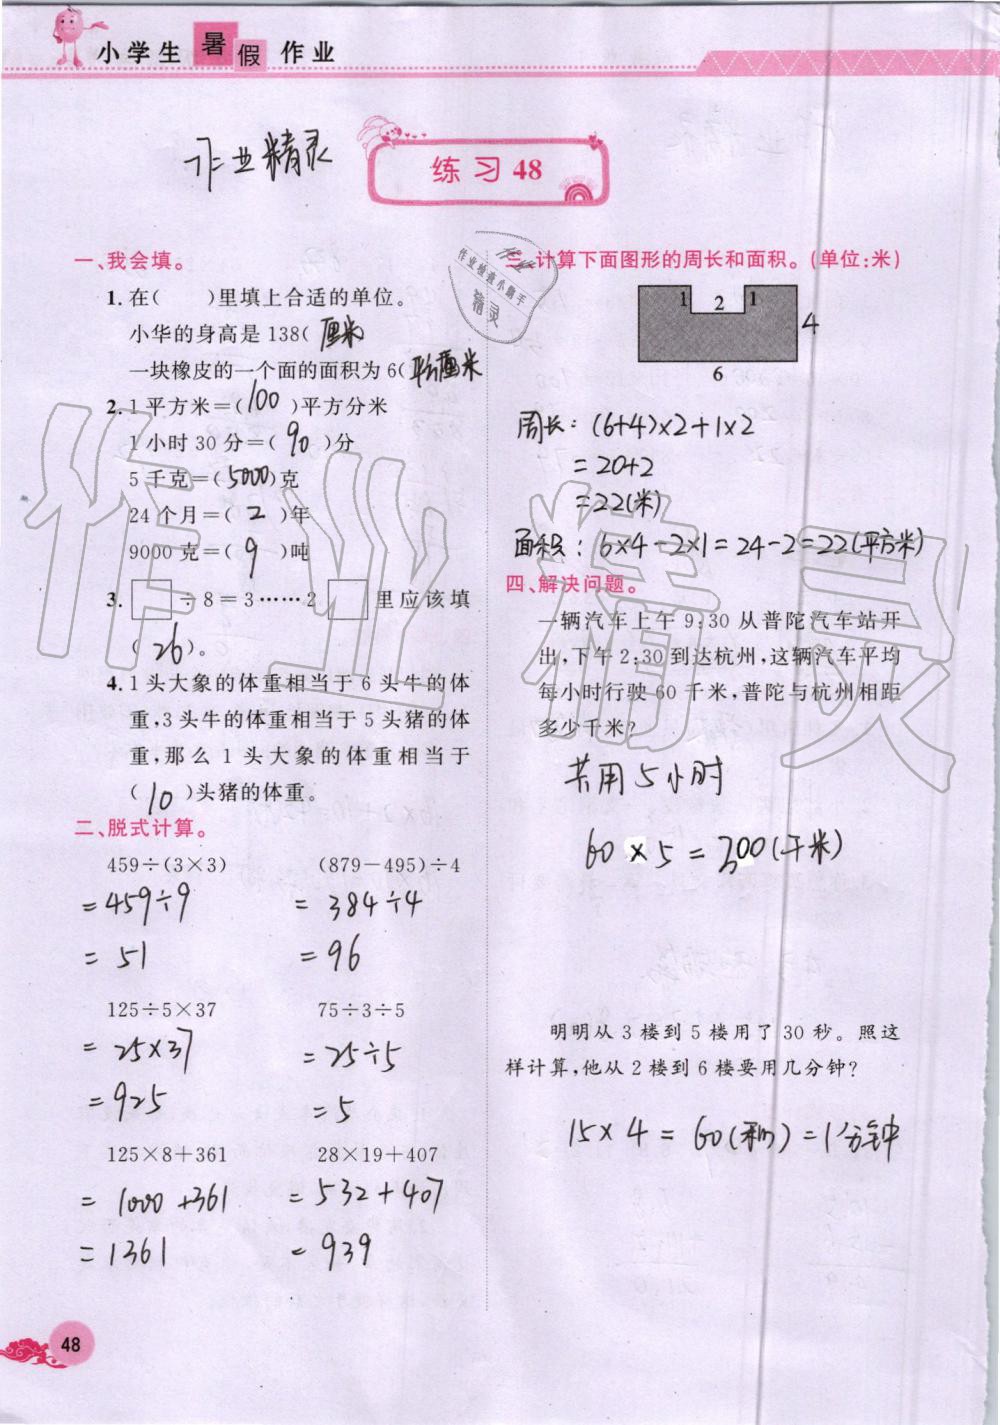 小学生暑假作业
作业精灵
练习48
作业
作业检查小助手
精灵
一、我会填。
1. 在(  )里填上合适的单位。
小华的身高是138(厘米
一块橡皮的一个面的面积为6(平方厘米
2. 1平方米=(100)平方分米
1小时30分=(90)分
5千克=(5000)克
24个月=(2)年
9000克=(9)吨
3. □÷8=3……2 □里应该填
(26)。
4. 1头大象的体重相当于6头牛的体
重,3头牛的体重相当于5头猪的体
重,那么1头大象的体重相当于
(10)头猪的体重。
二、脱式计算。
459÷(3×3) (879-495)÷4
=459÷9 =384÷4
=51 =96
125÷5×37 75÷3÷5
=25×37 =25÷5
=925 =5
125×8+361 28×19+407
=1000+361 =532+407
=1361 =939
三、计算下面图形的周长和面积。(单位:米)
1 2 1
4
6
周长: (6+4)×2+1×2
=20+2
=22(米)
面积: 6×4-2×1=24-2=22(平方米)
四、解决问题。
一辆汽车上午9:30从普陀汽车站开
出,下午2:30到达杭州,这辆汽车平均
每小时行驶60千米,普陀与杭州相距
多少千米?
共用5小时
60×5=300(千米)
明明从3楼到5楼用了30秒。照这
样计算,他从2楼到6楼要用几分钟?
15×4=60(秒)=1分钟
作业精灵
48